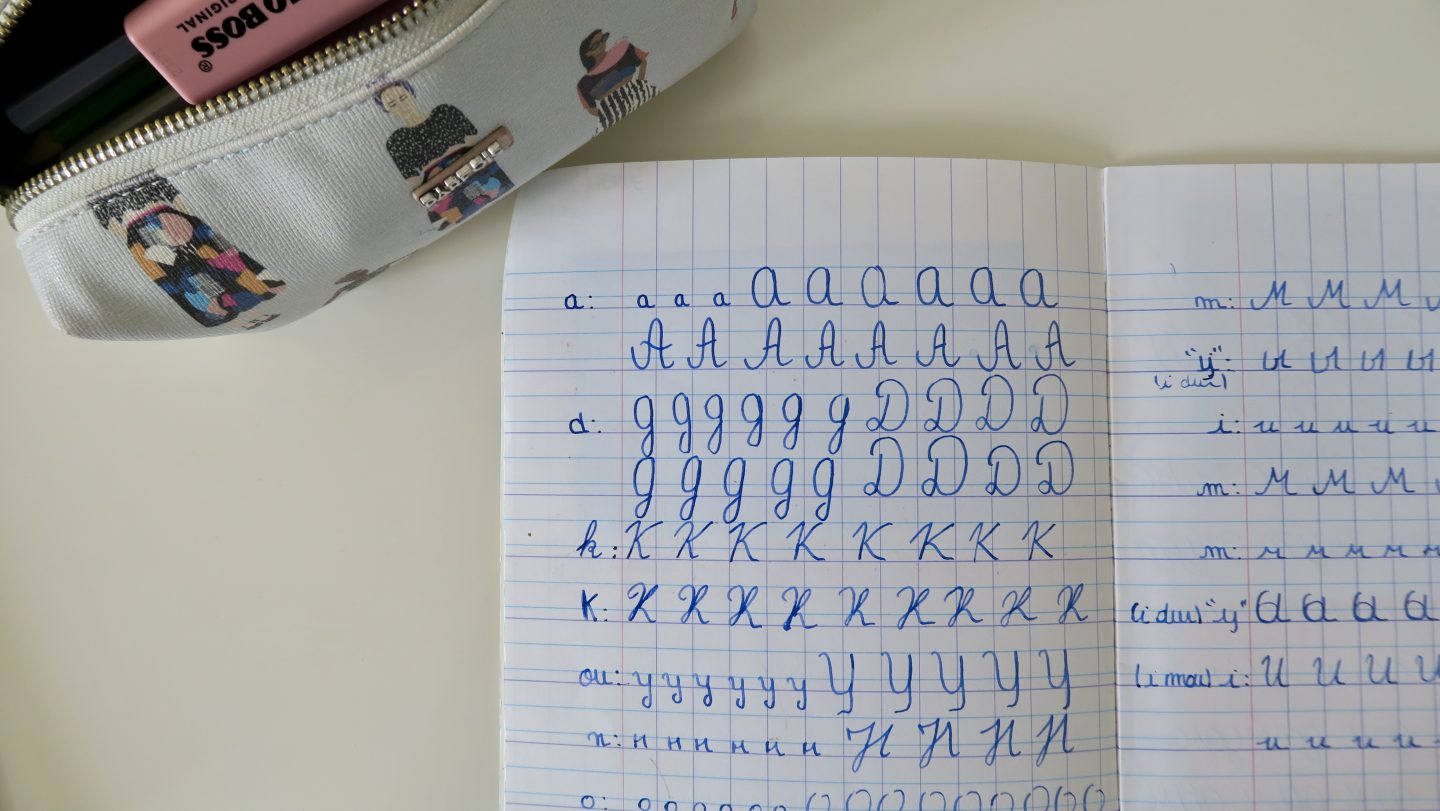 BOSS
ORIGINAL
®
a: а а а а а а а а а
А А А А А А А А
d: д д д д д д Д Д Д Д
д д д д д Д Д Д Д
k: К К К К К К К К
K: К К К К К К К К К
ou: у у у у у у У У У У У
n: н н н н н н Н Н Н Н
o: о о о о о о О О О О О О О О О
m: М М М
"y": ы ы ы ы
(i dur)
i: и и и и и
m: М М М
m: м м м м м
(i dur) "y"
(i mou) i: И И И И
и и и и